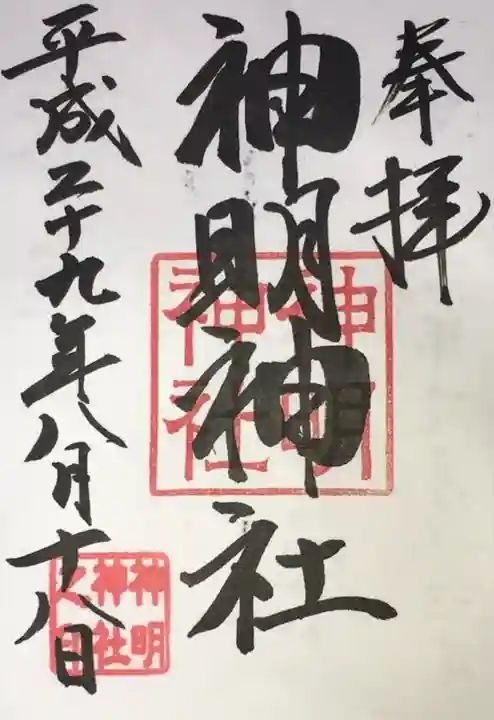 奉拝
神明神社
神明
神社
平成二十九年八月十八日
神明
神社
之印